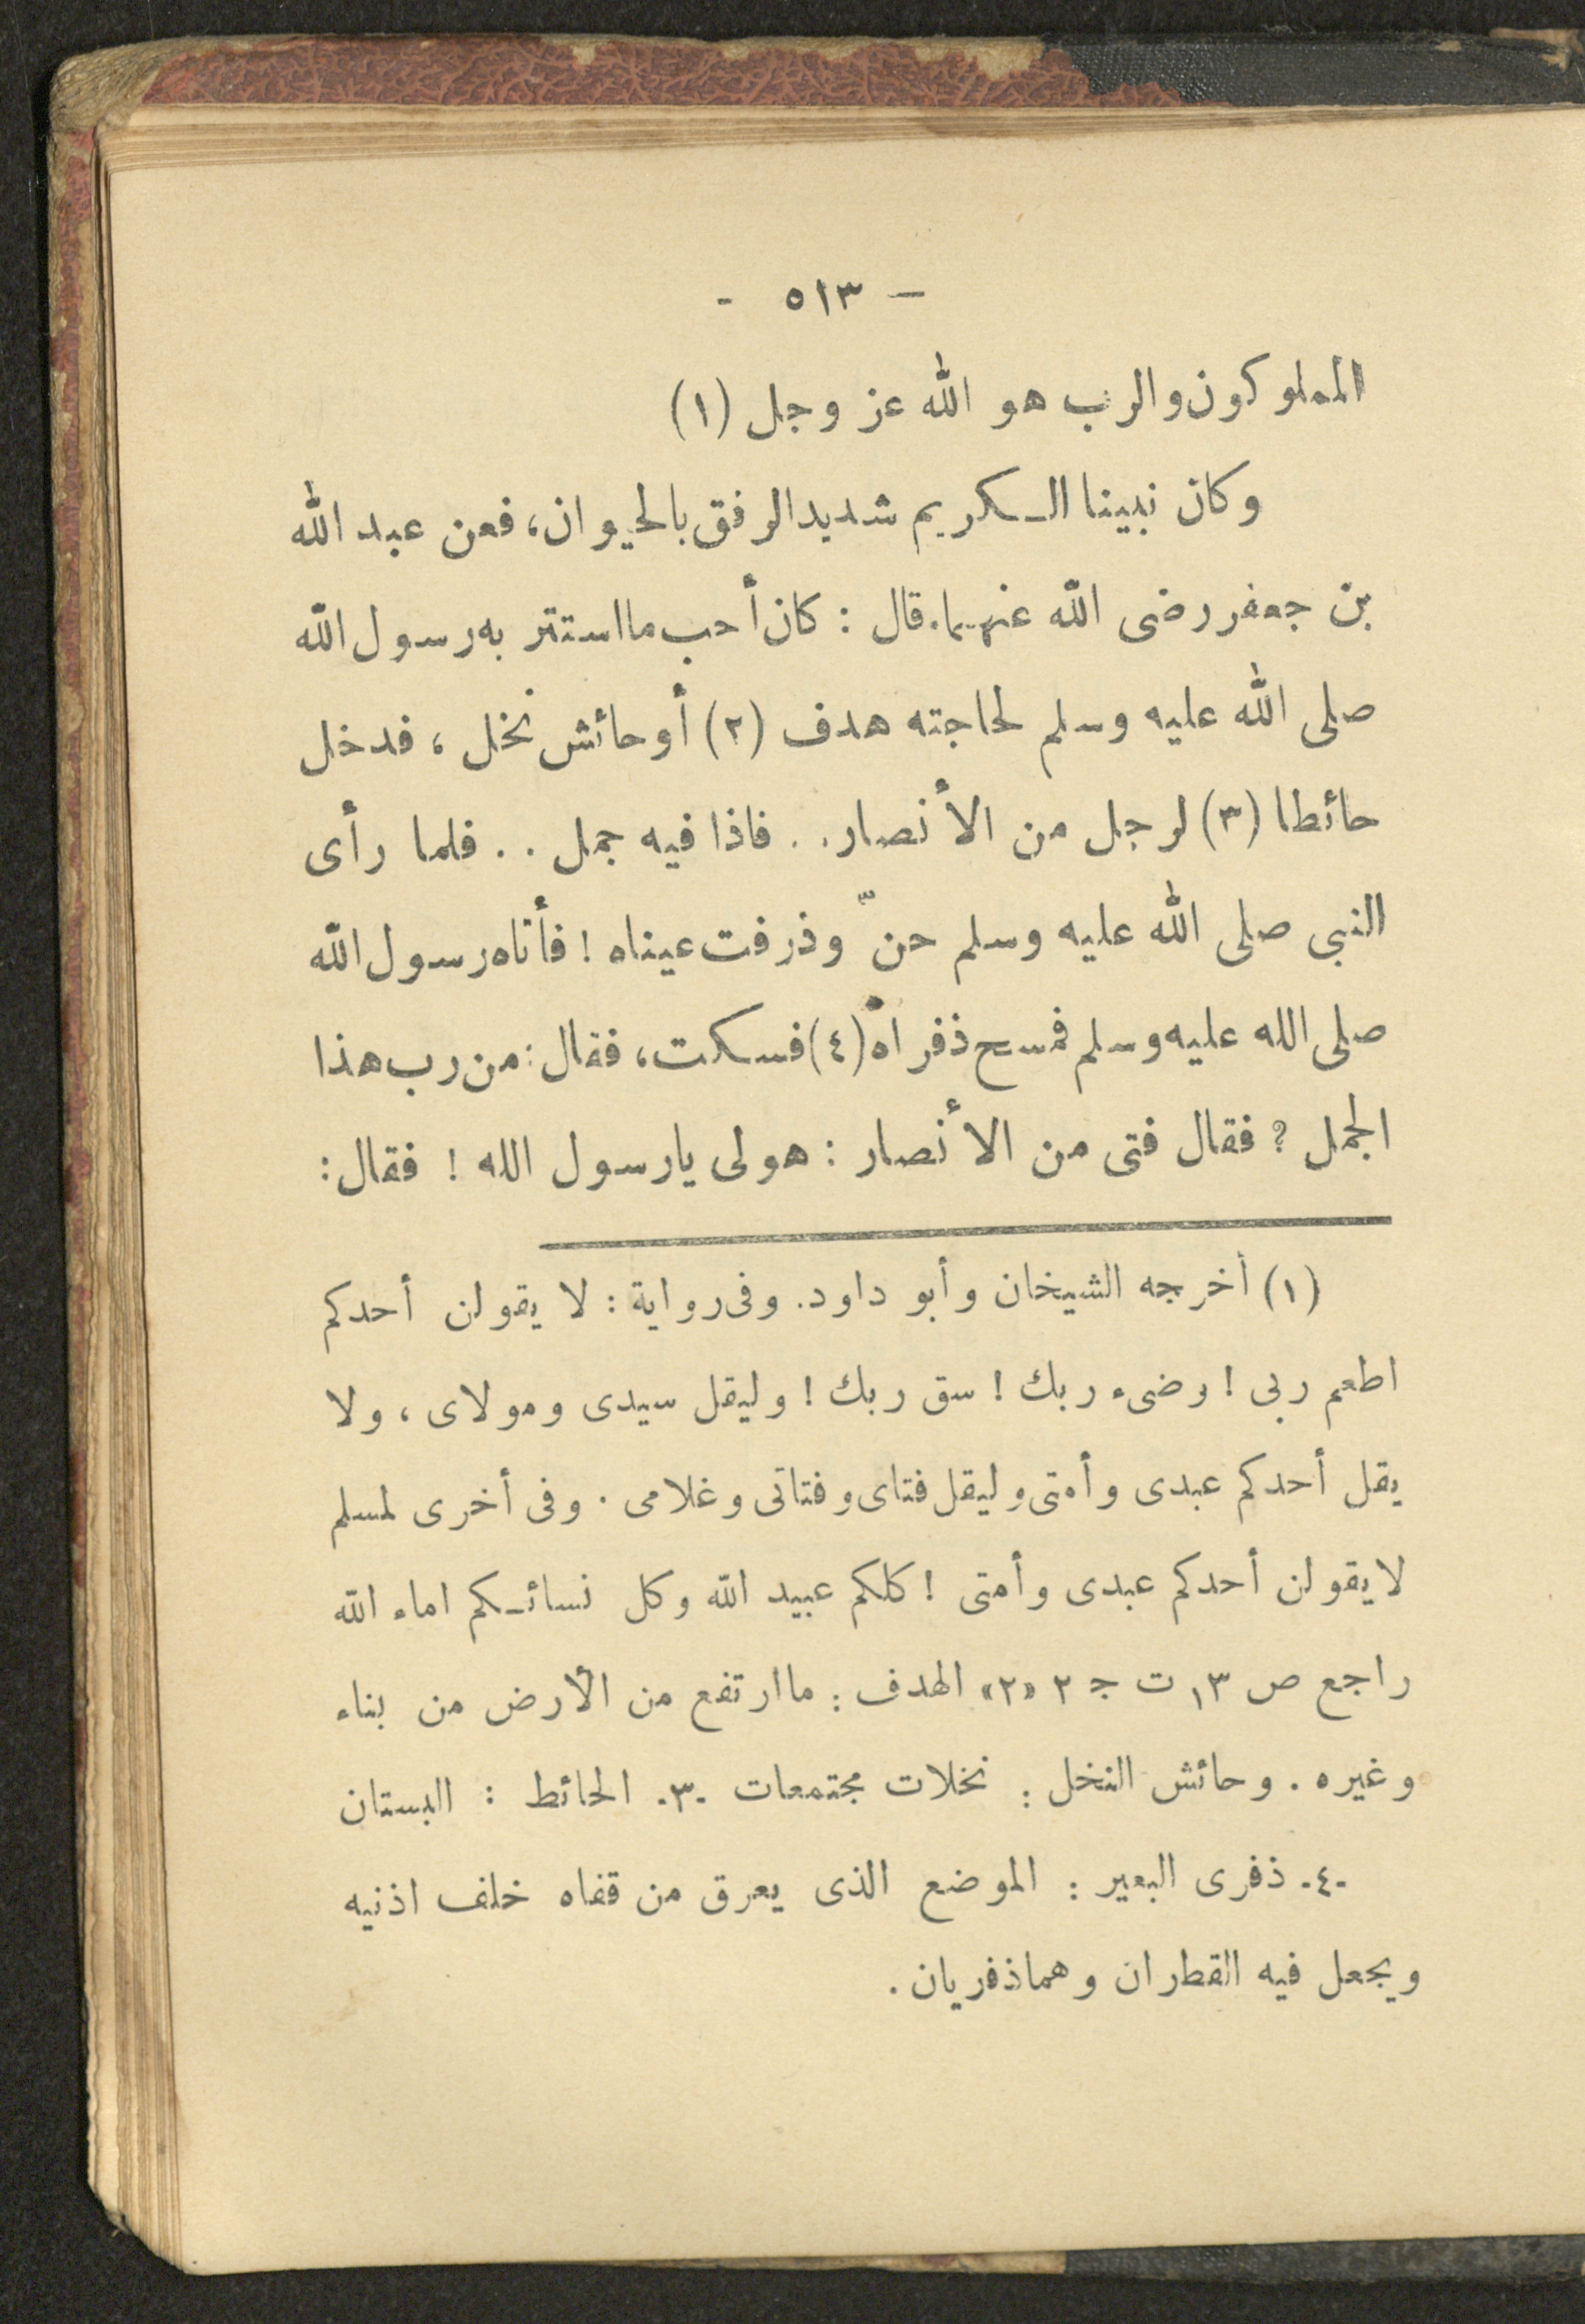 — ٥١٣ -
المملوكون والرب هو الله عز وجل (١)
وكان نبينا الكريم شديد الرفق بالحيوان، فعن عبد الله
بن جعفر رضى الله عنهما. قال : كان أحب ما استتر به رسول الله
صلى الله عليه وسلم لحاجته هدف (٢) أو حائش نخل ، فدخل
حائطا (٣) لرجل من الأنصار . . فاذا فيه جمل . . فلما رأى
النبى صلى الله عليه وسلم حنّ وذرفت عيناه ! فأتاه رسول الله
صلى الله عليه وسلم فمسح ذفراه (٤) فسكت، فقال : من رب هذا
الجمل ? فقال فتى من الأنصار : هو لى يا رسول الله ! فقال :
(١) أخرجه الشيخان وأبو داود. وفى رواية : لا يقولن أحدكم
اطعم ربى ! وضىء ربك ! سق ربك ! وليقل سيدى ومولاى ، ولا
يقل أحدكم عبدى وأمتى وليقل فتاى وفتاتى وغلامى . وفى أخرى لمسلم
لا يقولن أحدكم عبدى وأمتى ! كلكم عبيد الله وكل نسائكم اماء الله
راجع ص ١٣ ت ج ٢ «٢» الهدف : ما ارتفع من الأرض من بناء
وغيره . وحائش النخل : نخلات مجتمعات -٣- الحائط : البستان
-٤- ذفرى البعير : الموضع الذى يعرق من قفاه خلف اذنيه
ويجعل فيه القطران وهما ذفريان .